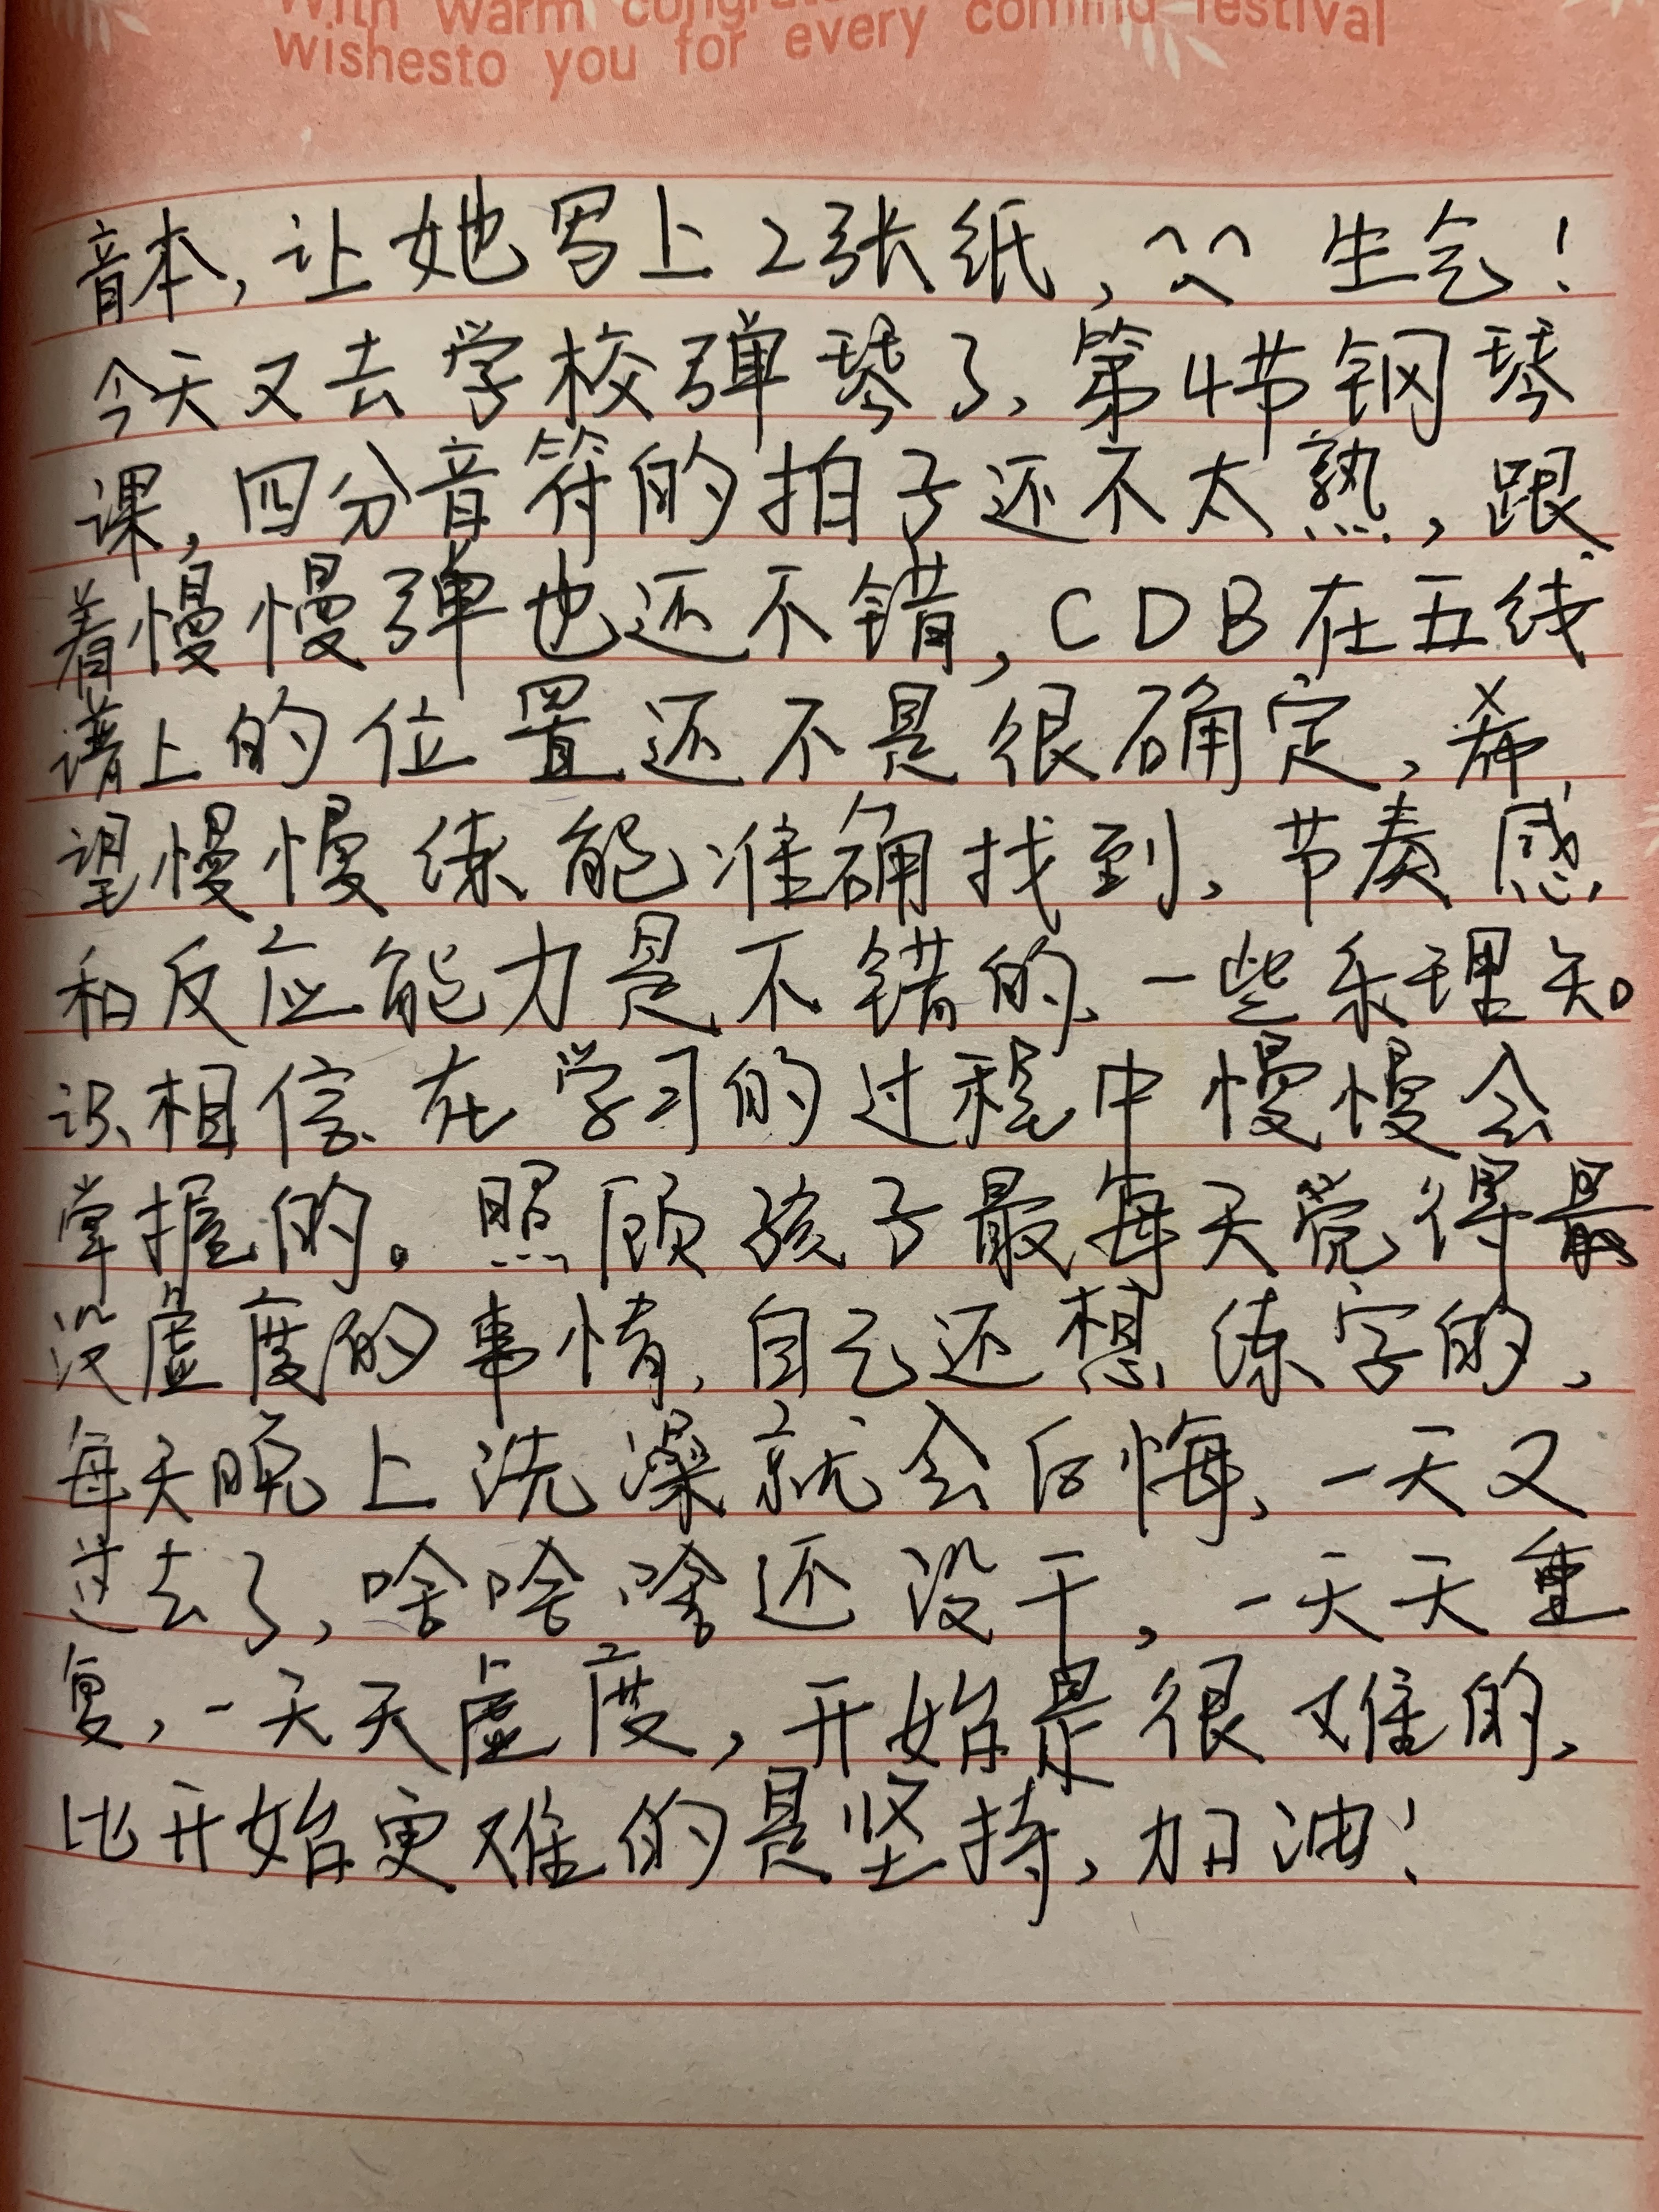 With warm congra
wishesto you for every coming festival
音本，让她写上2张纸，^^ 生气！
今天又去学校弹琴了，第4节钢琴
课，四分音符的拍子还不太熟，跟
着慢慢弹也还不错，CDB在五线
谱上的位置还不是很确定，希
望慢慢练能准确找到，节奏感
和反应能力是不错的，一些乐理知
识相信在学习的过程中慢慢会
掌握的。照顾孩子最每天觉得最
没虚度的事情，自己还想练字的，
每天晚上洗澡就会后悔，一天又
过去了，啥啥啥还没干，一天天重
复，一天天虚度，开始是很难的，
比开始更难的是坚持，加油！